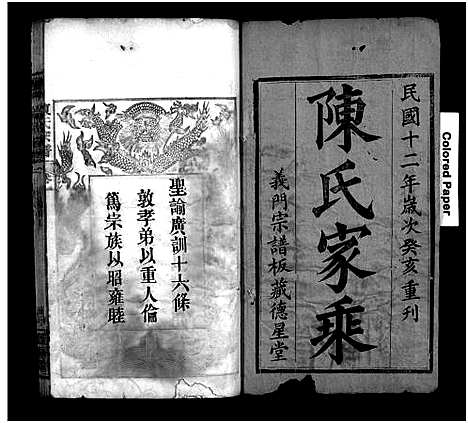 民國十二年歲次癸亥重刊
陳氏家乘
義門宗譜板藏德星堂
聖諭廣訓十六條
敦孝弟以重人倫
篤宗族以昭雍睦
Colored Paper